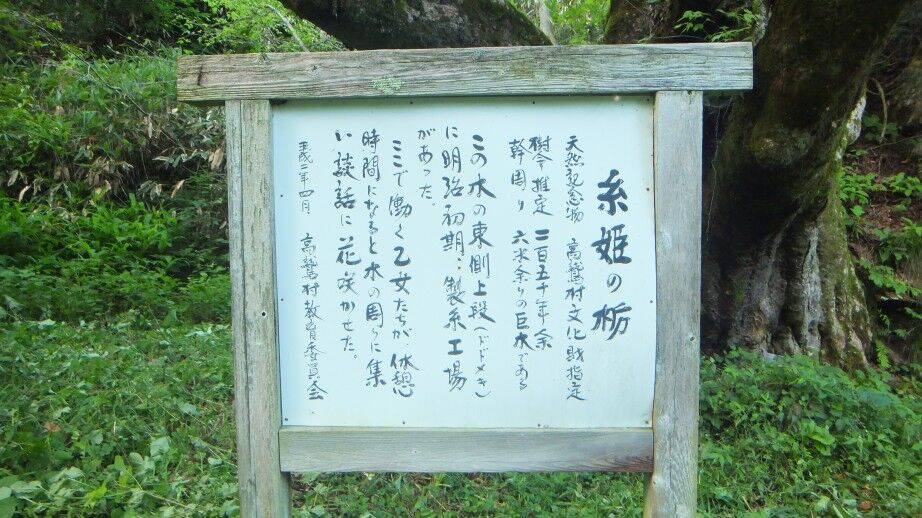 糸姫の栃
天然記念物 高鷲村文化財指定
樹令推定 二百五十年余
幹周り 六米余りの巨木である
この木の東側上段(ドドメキ)
に明治初期、製糸工場
があった。
ここで働く乙女たちが、休憩
時間になると木の周りに集
い談話に花咲かせた。
平成二年四月 高鷲村教育委員会